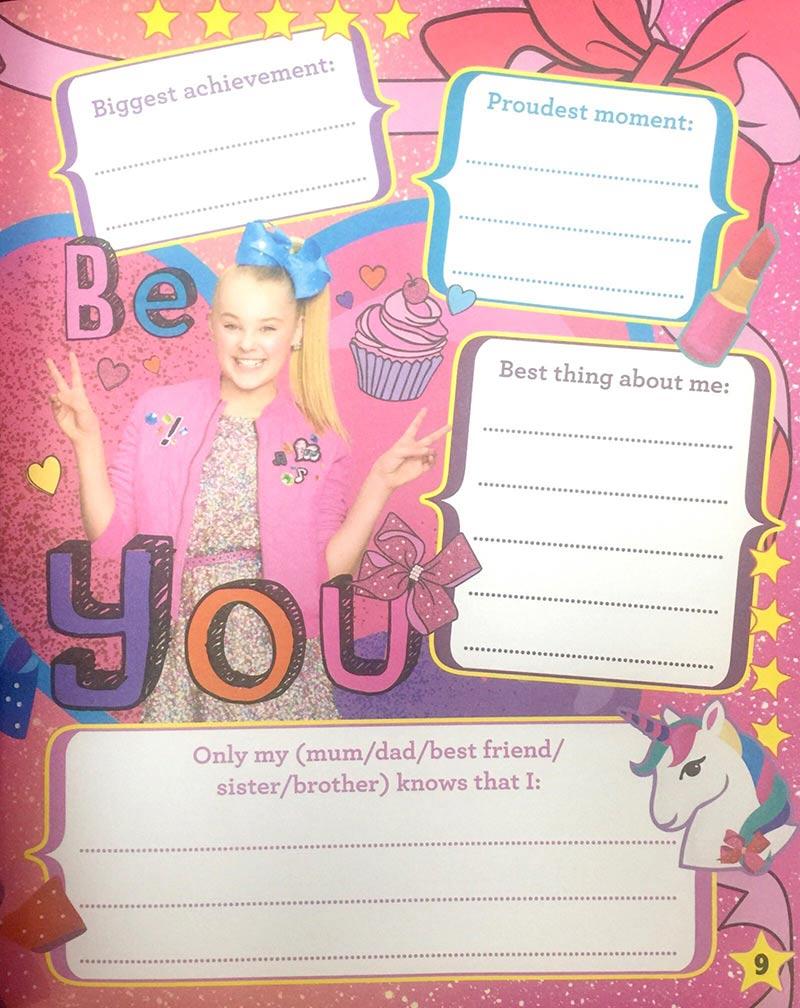 Biggest achievement:
Proudest moment:
Be
Best thing about me:
YOU
Only my (mum/dad/best friend/
sister/brother) knows that I:
9